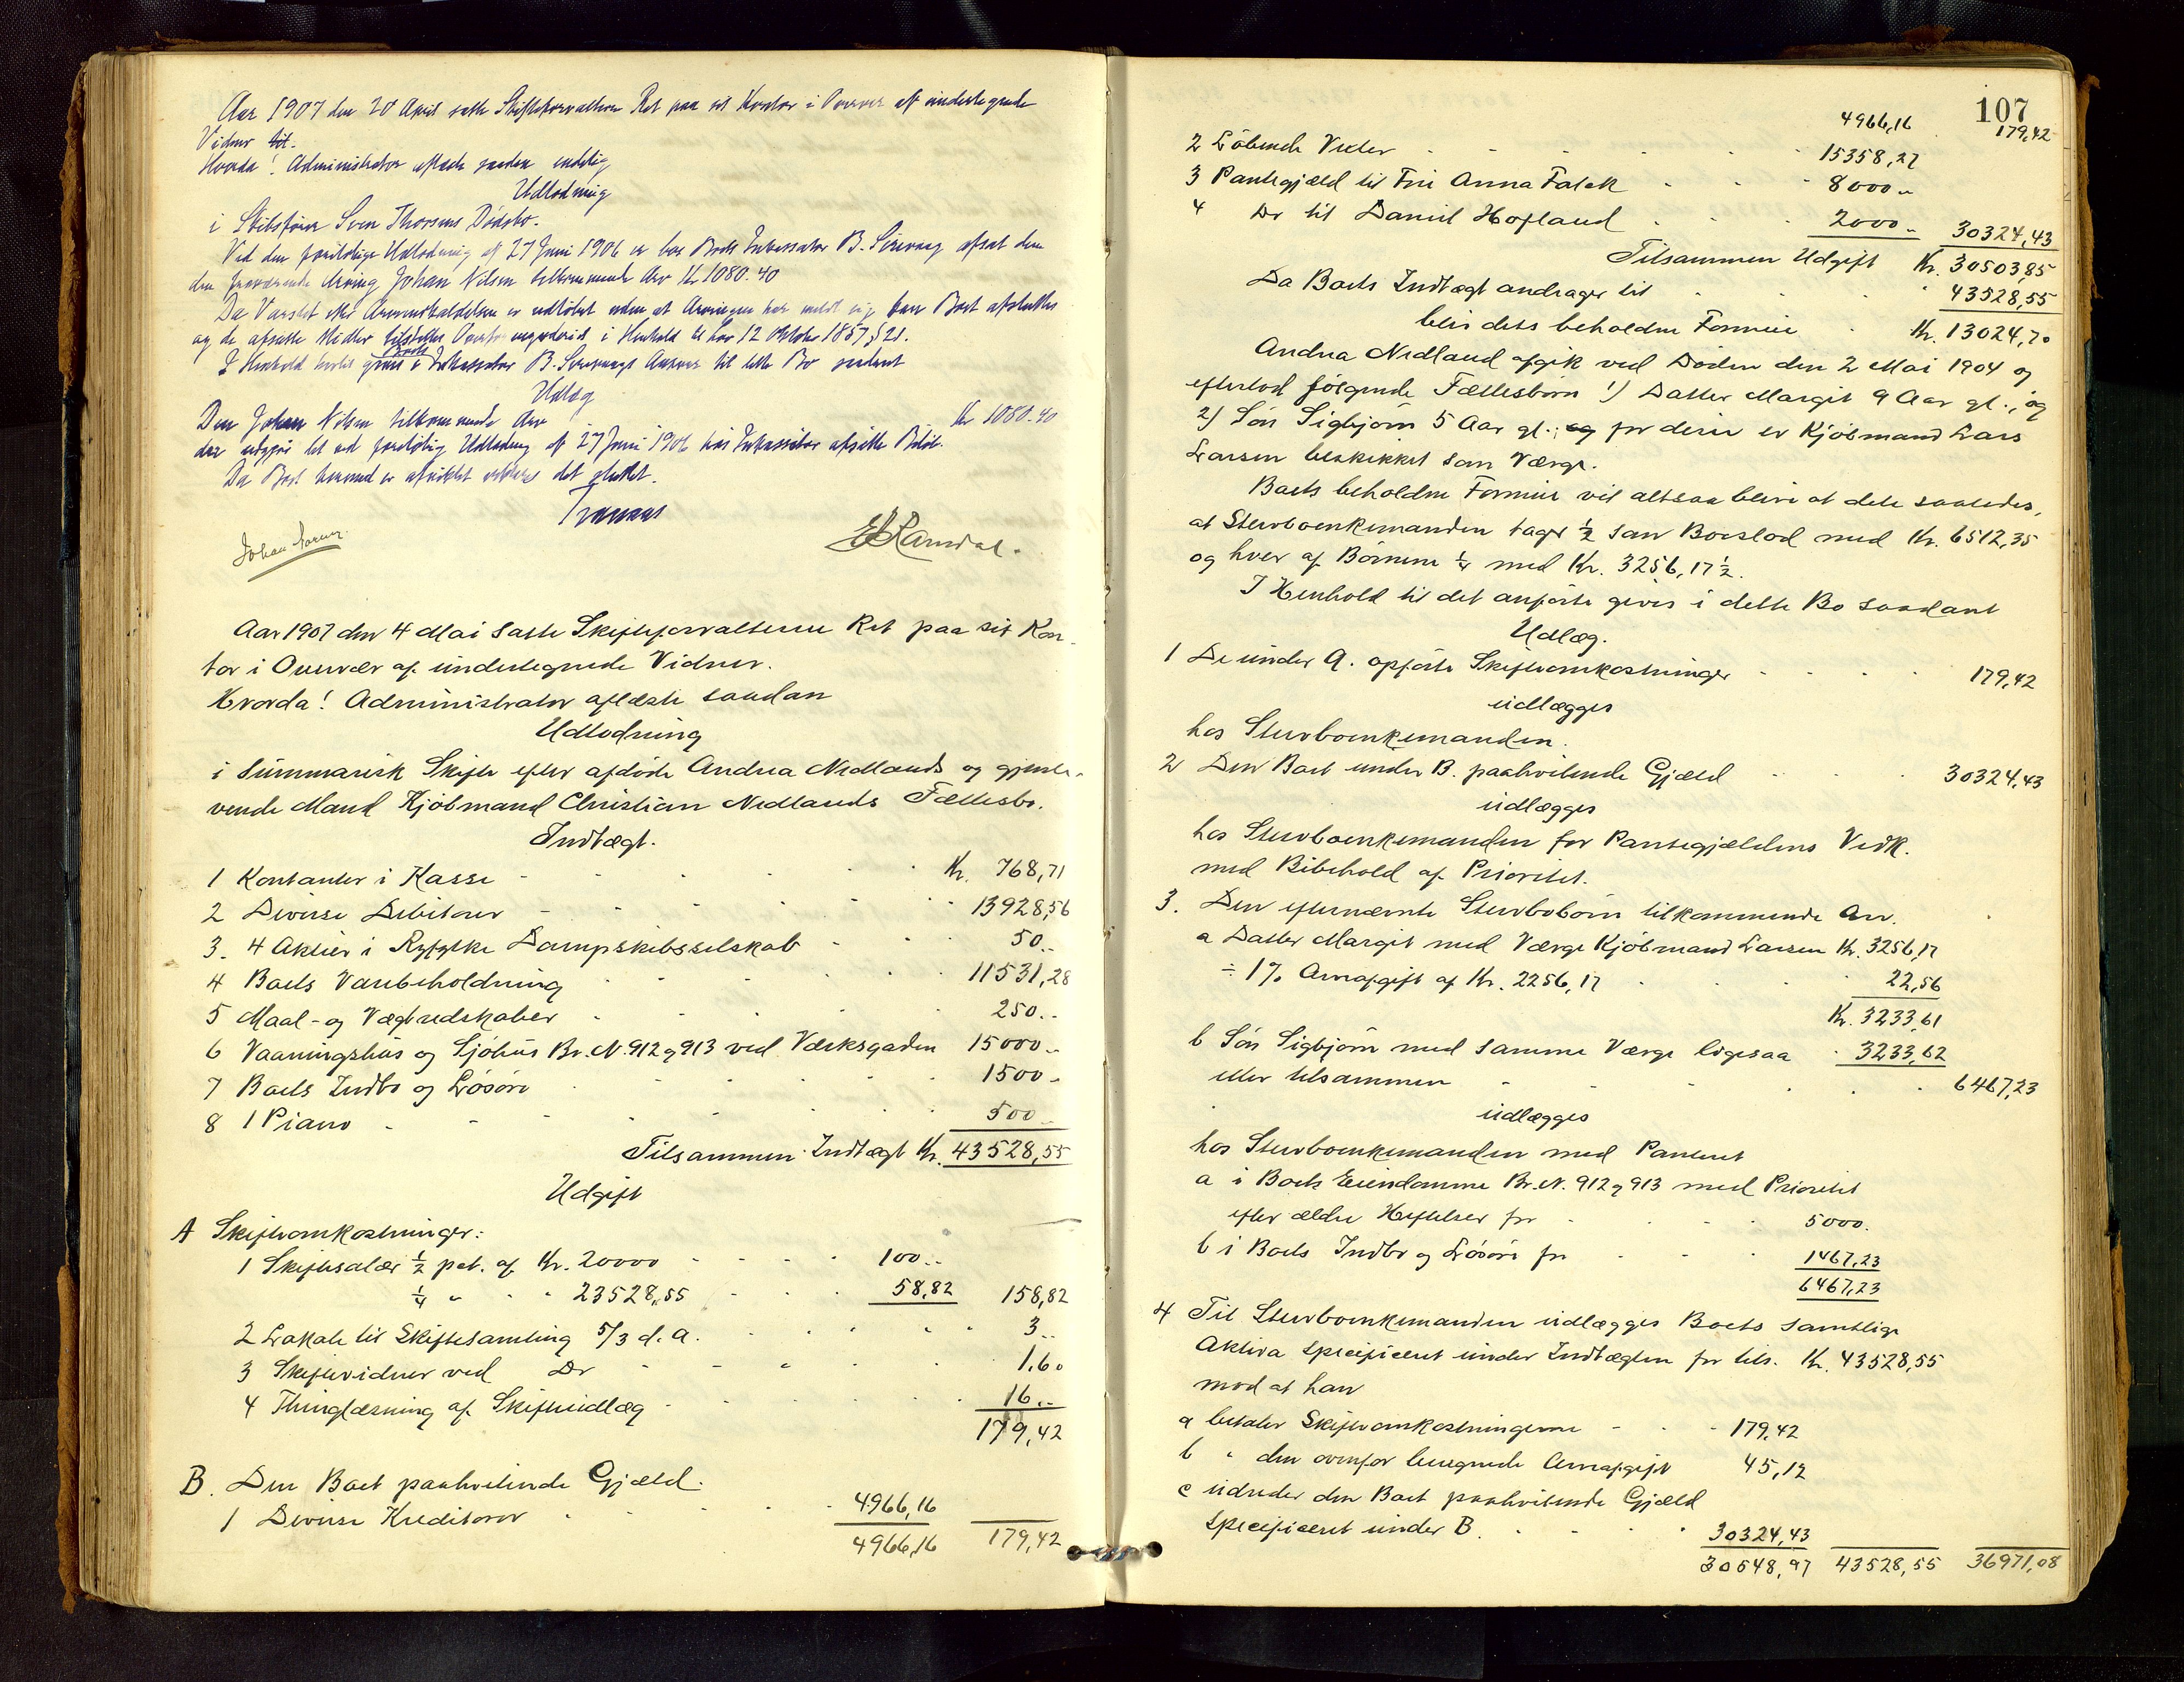 Aar 1907 den 20 April satte Skifteforvalteren Ret paa sit Kontor i Overvær af undertegnede
Vidner til.
Hvorda! Administrator aflæste saadan endelig
Udlodning
i Skibsfører Sven Thorsens Dødsbo.
Ved den foreløbige Udlodning af 27 Juni 1906 er hos Boets Inkassator B. Sirevaag afsat den
den fraværende Arving Johan Nilsen tilkommende Arv Kr 1080.40
Da Varslet efter Arveindkaldelsen er udløbet uden at Arvingen har meldt sig kan Boet afsluttes
og de afsatte Midler tilstilles Overformynderiet i Henhold til Lov 12 Oktober 1857 § 21.
I Henhold hertil gives i Boets Inkassator B. Sirevaags Ansvar til dette Bo saadant
Udlæg
Den Johan Nilsen tilkommende Arv Kr 1080.40
der udgjør det ved foreløbig Udlodning af 27 Juni 1906 hos Inkassator afsatte Beløb.
Da Boet hermed er afviklet erklæres det sluttet.
Johan Sørum
E Ramdal.
Aar 1907 den 4 Mai satte Skifteforvalteren Ret paa sit Kon-
tor i Overvær af undertegnede Vidner.
Hvorda! Administrator aflæste saadan
Udlodning
i summarisk Skifte efter afdøde Andrea Nedlands og gjenle-
vende Mand Kjøbmand Christian Nedlands Fællesbo.
Indtægt.
1 Kontanter i Kasse Kr. 768,71
2 Diverse Debitorer 13928,56
3. 4 Aktier i Ryfylke Dampskibsselskab 50..
4 Boets Varebeholdning 11531,28
5 Maal- og Vægtredskaber 250..
6 Vaaningshus og Sjøhus Br. N. 912 og 913 ved Værksgaden 15000..
7 Boets Indbo og Løsøre 1500-
8 1 Piano 500..
Tilsammen Indtægt Kr. 43528,55
Udgift
A Skifteomkostninger:
1 Skiftesalær ½ pct. af Kr. 20000 100..
¼ " " " 23528,55 58,82 158,82
2 Lokale til Skiftesamling 5/3 d. A. 3..
3 Skiftevidner ved Do 1.60
4 Thinglæsning af Skifteudlæg 16..
179,42
B. Den Boet paahvilende Gjæld.
1 Diverse Kreditorer 4966,16
4966,16 179,42
107
4966,16 179,42
2 Løbende Vexler 15358,27
3 Pantegjæld til Fru Anna Falck 8000..
4 Do til Daniel Hofland 2000.. 30324,43
Tilsammen Udgift Kr. 30503,85
Da Boets Indtægt andrager til 43528,55
blir dets beholdne Formue Kr. 13024,70
Andrea Nedland afgik ved Døden den 2 Mai 1904 og
efterlod følgende Fællesbørn 1) Datter Margit 9 Aar gl., og
2) Søn Sigbjørn 5 Aar gl.; og for disse er Kjøbmand Lars
Larsen beskikket som Værge.
Boets beholdne Formue vil altsaa blive at dele saaledes,
at Stervboenkemanden tager ½ som Boeslod med Kr. 6512,35
og hver af Børnene ¼ med Kr. 3256,17½.
I Henhold til det anførte gives i dette Bo saadant
Udlæg.
1 De under A. opførte Skifteomkostninger 179,42
udlægges
hos Stervboenkemanden.
2 Den Boet under B. paahvilende Gjæld 30324,43
udlægges
hos Stervboenkemanden for Pantegjældens Vedk.
med Bibehold af Prioritet.
3. Den efternævnte Stervbobørn tilkommende Arv.
a Datter Margit med Værge Kjøbmand Larsen Kr. 3256,17
÷ 1% Arveafgift af Kr. 2256,17 22,56
Kr. 3233,61
b Søn Sigbjørn med samme Værge ligesaa 3233,62
eller tilsammen 6467,23
udlægges
hos Stervboenkemanden med Panteret
a i Boets Eiendomme Br. N. 912 og 913 med Prioritet
efter ældre Heftelser for 5000.
b i Boets Indbo og Løsøre for 1467,23
6467,23
4 Til Stervboenkemanden udlægges Boets samtlige
Aktiva specificeret under Indtægten for tils. Kr. 43528,55
mod at han
a betaler Skifteomkostningerne 179,42
b " den ovenfor beregnede Arveafgift 45,12
c udreder den Boet paahvilende Gjæld
specificeret under B. 30324,43
30548,97 43528,55 36971,08